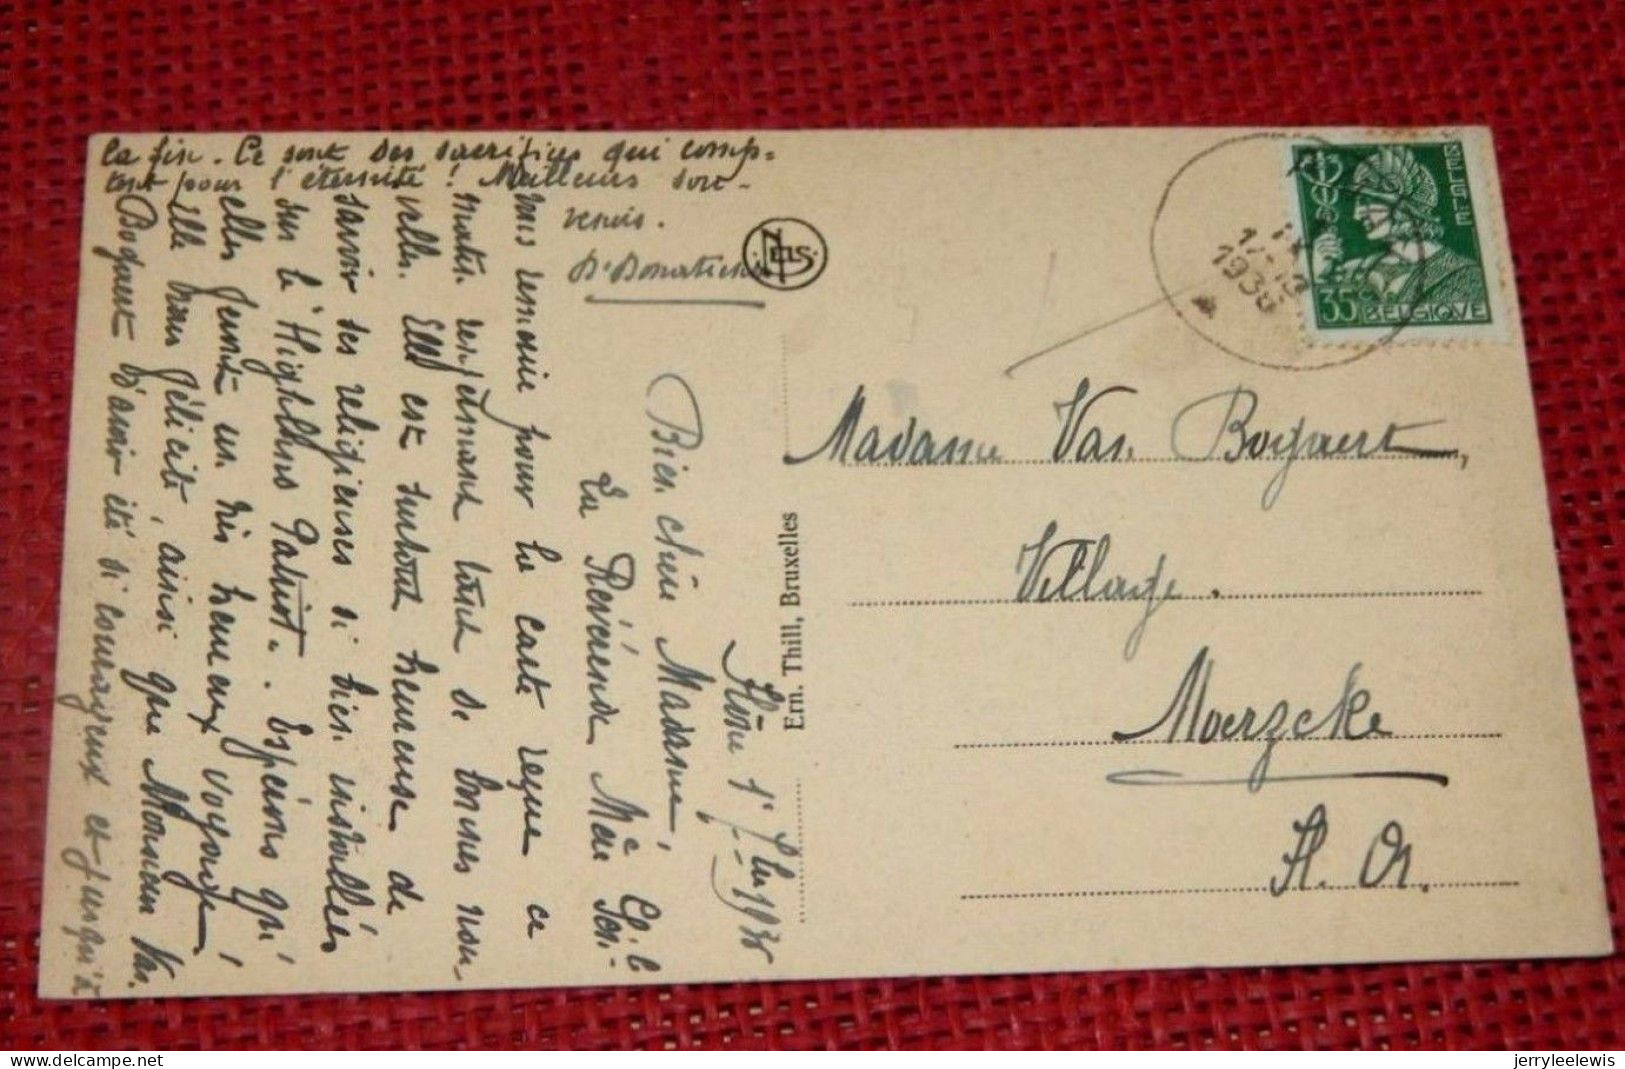 Flône 1r 1935
Bien chère Madame,
La Révérende Mère
vous remercie pour la carte reçue ce
matin renfermant tant de bonnes nou-
velles. Elle est surtout heureuse de
savoir ses religieuses si bien installées
sur le "Highland Patriot". Espérons qu'
elles feront un très heureux voyage!
Elle vous félicite, ainsi que Monsieur Van
Bogaert d'avoir été si courageux et jusqu'à
la fin. Ce sont des sacrifices qui comp-
tent pour l'éternité! Meilleurs sou-
venirs.
NELS
Ern. Thill, Bruxelles
BELGIE
35c BELGIQUE
Madame Van Bogaert,
Village.
Moerzeke
Fl. Or.
delcampe.net
jerryleelewis